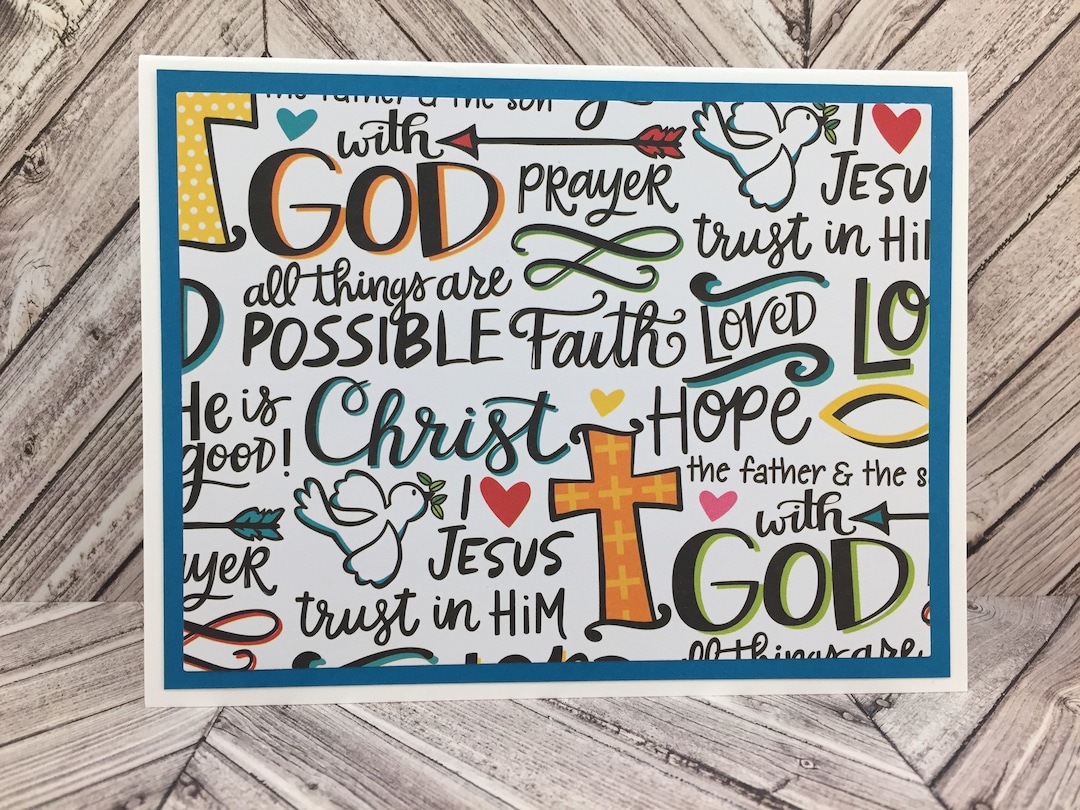 the father & the son
with
GOD
all things are
POSSIBLE
PRAYER
I
JESU
trust in Hi
Faith
LOVED
LO
He is
good!
Christ
HOPE
the father & the s
I
JESUS
trust in HiM
with
GOD
all things are
ayer